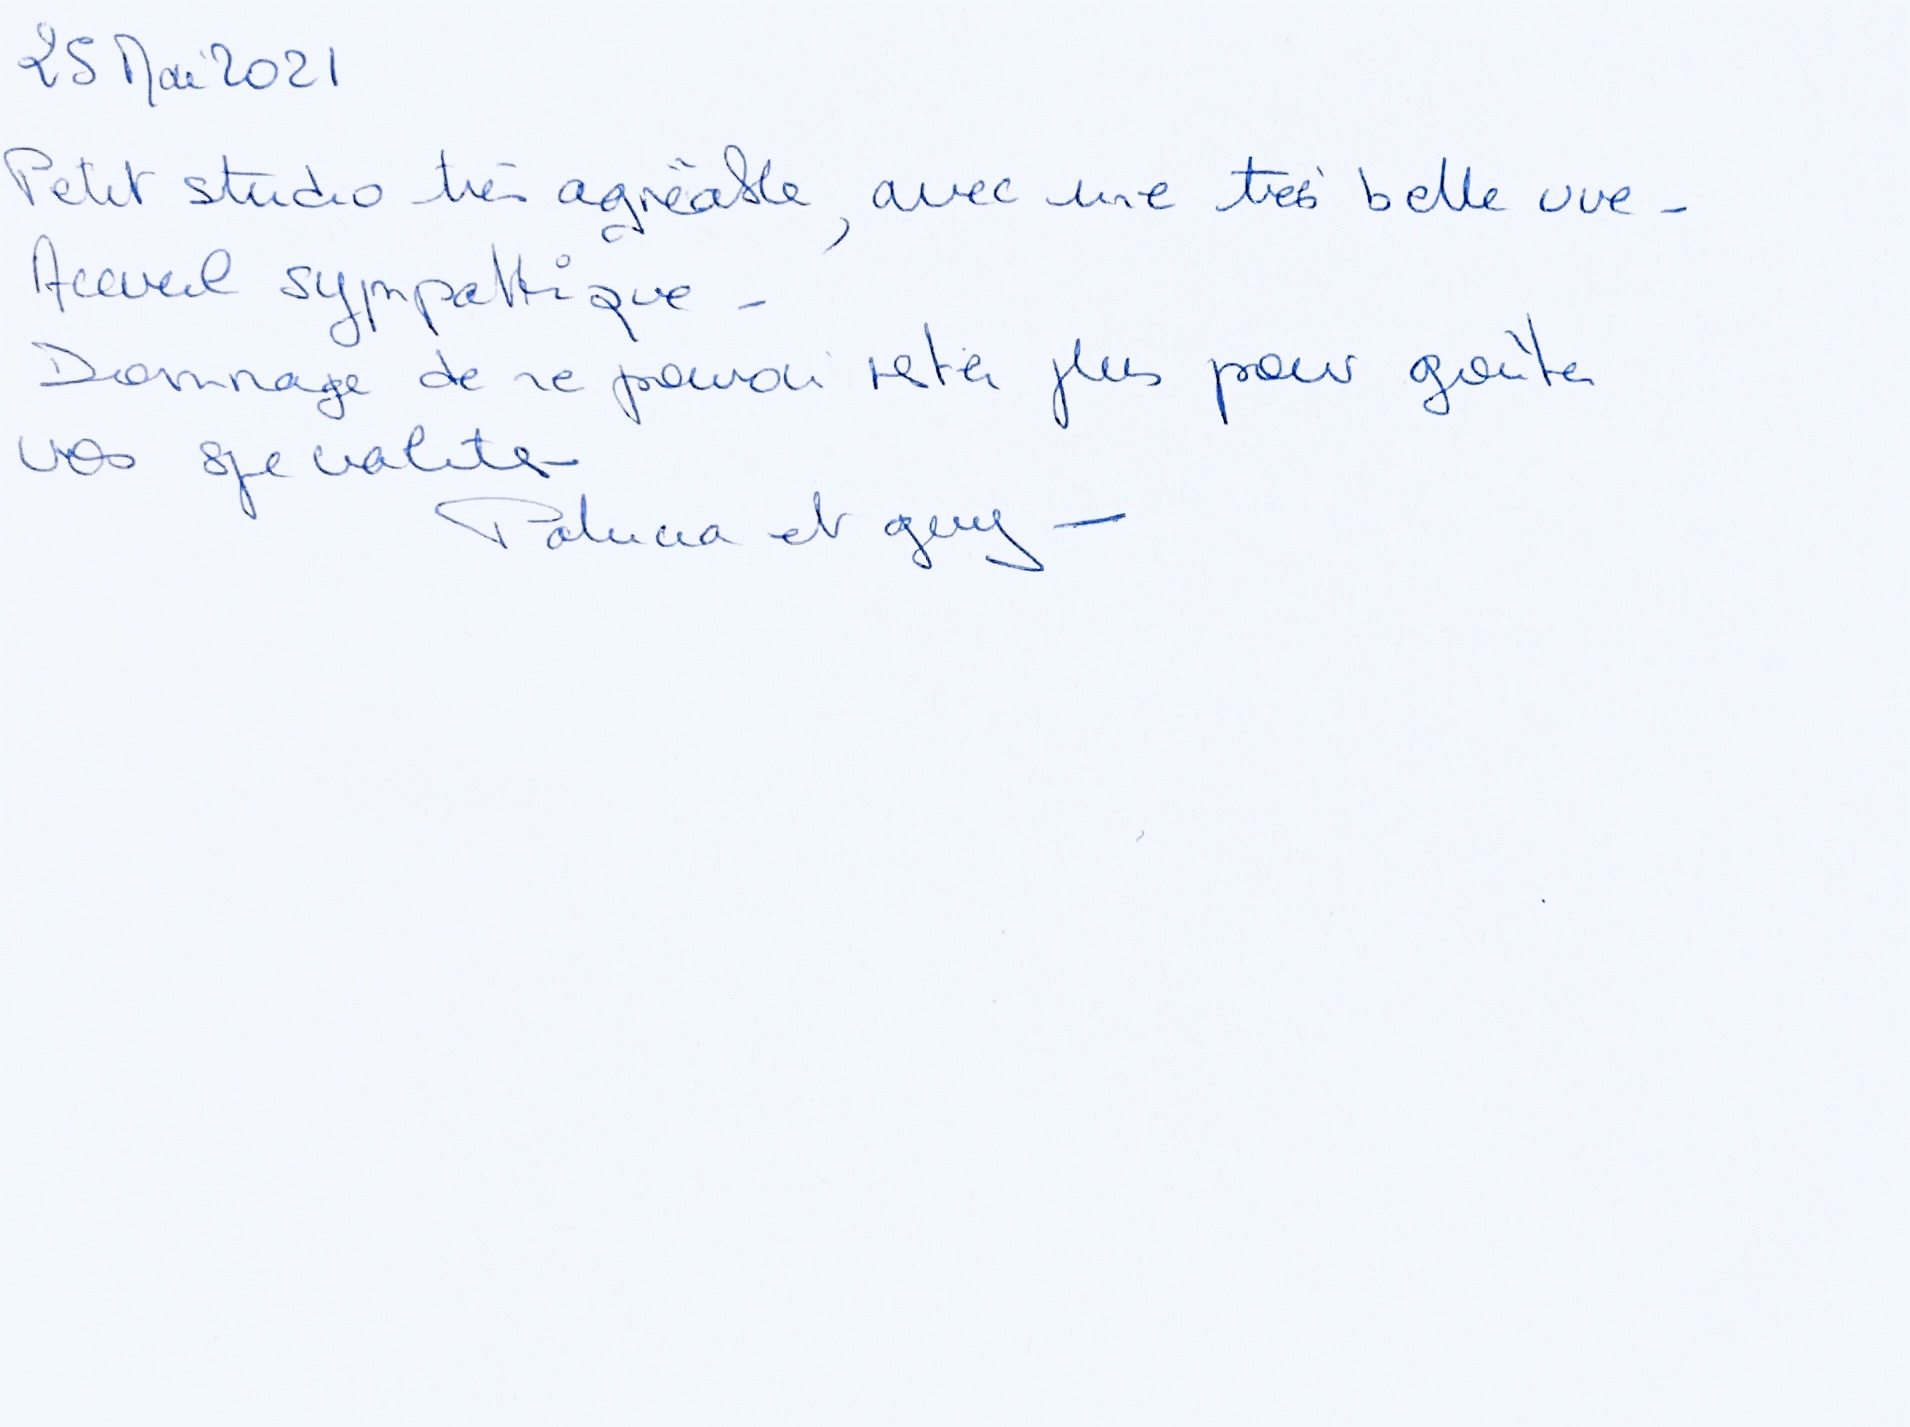 25 Mai 2021
Petit studio très agréable, avec une très belle vue -
Accueil sympathique -
Dommage de ne pouvoir rester plus pour goûter
vos specialites
Patricia et guy -